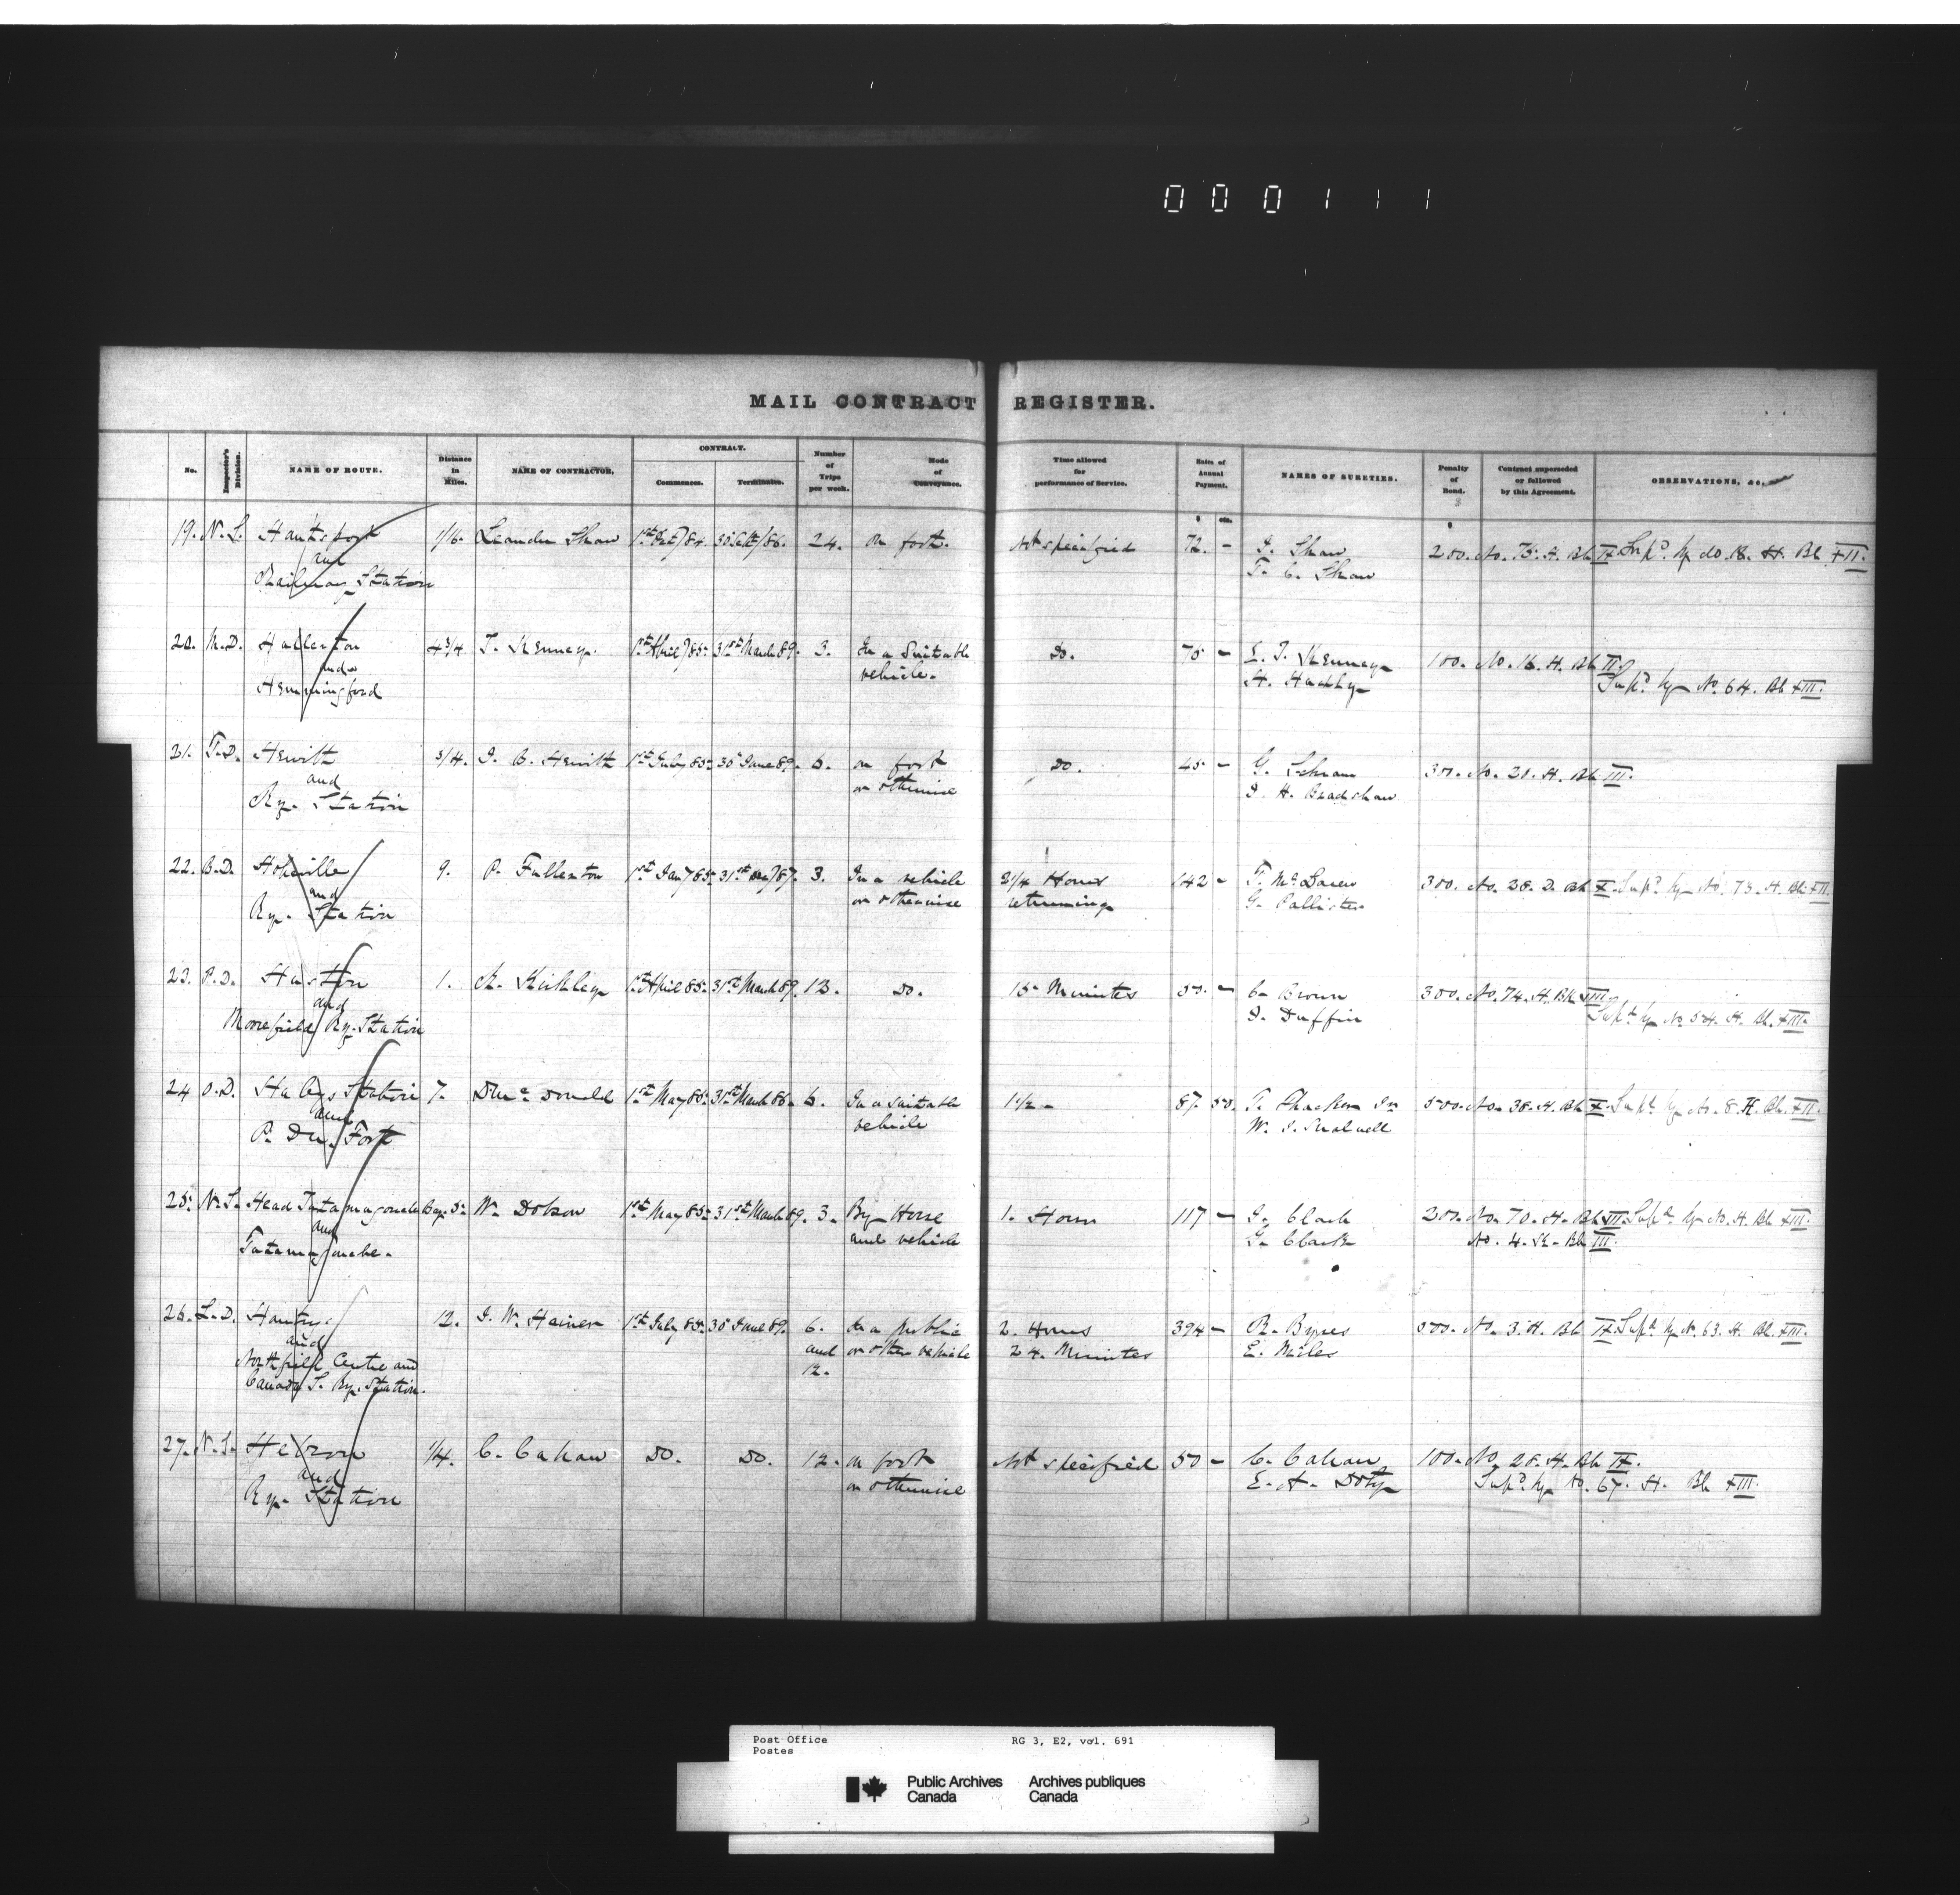 000111
MAIL CONTRACT REGISTER.
No. Inspector's Division. NAME OF ROUTE. Distance in Miles. NAME OF CONTRACTOR. CONTRACT. Commences. Terminates. Number of Trips per week. Mode of Conveyance. Time allowed for performance of Service. Rates of Annual Payment. $ cts. NAMES OF SURETIES. Penalty of Bond. $ Contract superseded or followed by this Agreement. OBSERVATIONS, &c.
19. N.S. Hantsport 1/16. Leander Shaw 1st Oct/84. 30 Sept/86. 24. On foot. Not specified 72. - J. Shaw 200. No. 75. H. Bk IX. Sup'd. by No 18. H. Bk XII.
and T. C. Shaw
Railway Station
20. M.D. Hallerton 4 3/4 T. Kenney. 1st April/85. 31st March 89. 3. In a Suitable Do. 75 - E. T. Kenney 100. No. 16. H. Bk II.
and vehicle. Sup'd by No. 64. Bk XIII.
Hemmingford
21. T.D. Hewitt 3/4. J. B. Hewitt 1st July 85. 30 June 89. 6. on foot Do. 45 - G. Schram 300. No. 21. H. Bk III.
and or otherwise J. H. Bradshaw
Ry. Station
22. B.D. Hopeville 9. P. Fullerton 1st Jan/85. 31st Dec/87. 3. In a vehicle 2 1/4 Hours 142 - T. McLaren 300. No. 28. D. Bk X. Sup'd by No. 73. H. Bk XII
and or otherwise returning G. Pallister
Ry. Station
23. P.D. Huston 1. A. Keithley 1st April 85. 31st March 89. 12. Do. 15 Minutes 50. - C. Brown 300. No. 74. H. Bk VIII.
and J. Duffin Sup'd by No 54. H. Bk. XIII.
Moorefield Ry. Station
24 O.D. Haleys Station 7. D. McDonald 1st May 85. 31st March 86. 6. In a suitable 1 1/2 - 87. 50. T. Shacken Jr 500. No. 38. H. Bk X. Sup'd by No. 8. H. Bk. XII.
and vehicle
P. Du Fort
25. N.S. Head Tatamagouche Bay. 5. W. Dobson 1st May 85. 31st March 89. 3. By Horse 1. Hour 117 - J. Clark 200. No. 70. H. Bk VIII. Sup'd by No. H. Bk XIII.
and and vehicle G. Clark No. 4. K. Bk III.
Tatamagouche.
26. L.D. 12. J. W. Hainer 1st July 85. 30 June 89. 6. In a public 2. Hours 394 - R. Byres 500. No. 3. H. Bk IX. Sup'd by No. 63. H. Bk. XIII.
and and or other vehicle 24. Minutes E. Miles
Northfield Centre and 12.
Canada S. Ry. Station.
27. N.S. Hebron 1/4. C. Cahan Do. Do. 12. on foot Not specified 50 - C. Cahan 100. No. 28. H. Bk IX.
and or otherwise E. A. Doty Sup'd by No. 67. H. Bk XIII.
Ry. Station
Post Office RG 3, E2, vol. 691
Postes
Public Archives Archives publiques
Canada Canada